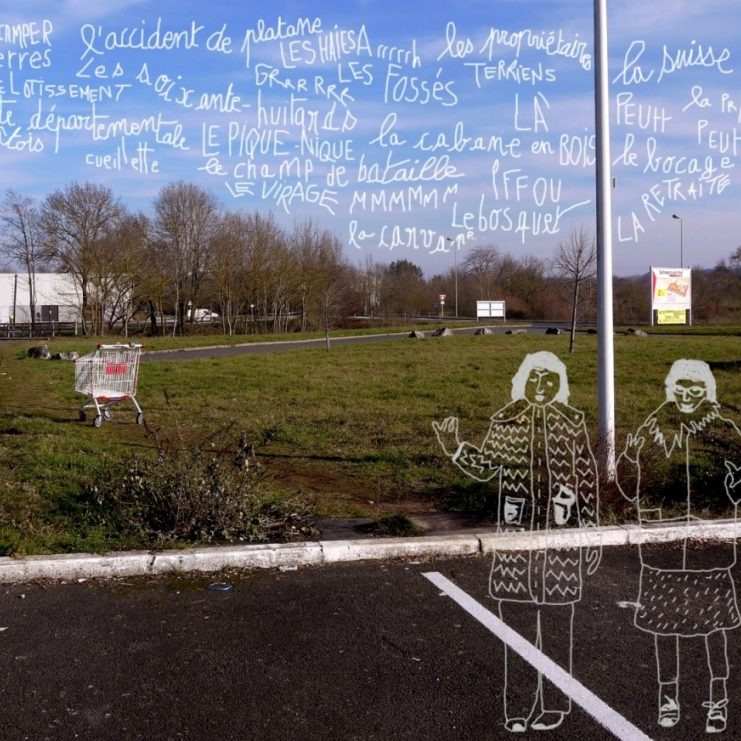 CAMPER l'accident de platane les propriétaires la suisse
erres LES HAIES Arrrrrh
Les soixante-huitards GRARRRR LES FOSSÉS TERRIENS
LOTISSEMENT LÀ PEUH la PR
te départementale LE PIQUE-NIQUE la cabane en BOIS le bocage PEUH
cueillette le champ de bataille
LE VIRAGE MMMMMM PFFOU LA RETRAITE
Le bosquet